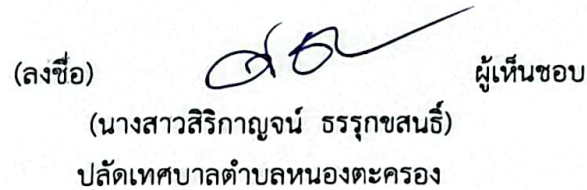 (ลงชื่อ) ผู้เห็นชอบ
(นางสาวสิริกาญจน์ ธรรุกขสนธิ์)
ปลัดเทศบาลตำบลหนองตะครอง